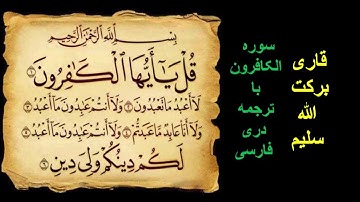 بِسْمِ اللَّهِ الرَّحْمَٰنِ الرَّحِيمِ
قُلْ يَٰٓأَيُّهَا ٱلْكَٰفِرُونَ ١
لَآ أَعْبُدُ مَا تَعْبُدُونَ ٢ وَلَآ أَنتُمْ عَٰبِدُونَ مَآ أَعْبُدُ ٣
وَلَآ أَنَا۠ عَابِدٌ مَّا عَبَدتُّمْ ٤ وَلَآ أَنتُمْ عَٰبِدُونَ مَآ أَعْبُدُ ٥
لَكُمْ دِينُكُمْ وَلِىَ دِينِ ٦
سوره
الکافرون
با
ترجمه
دری
فارسی
قاری
برکت
الله
سلیم